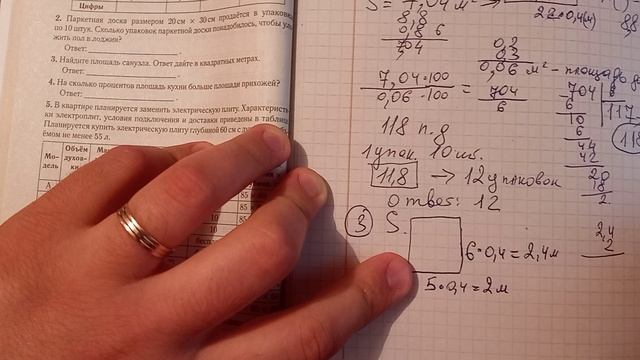 Цифры
2. Паркетная доска размером 20 см × 30 см продаётся в упаковках
по 10 штук. Сколько упаковок паркетной доски понадобилось, чтобы
жить пол в лоджии?
Ответ:
3. Найдите площадь санузла. Ответ дайте в квадратных метрах.
Ответ:
4. На сколько процентов площадь кухни больше площади прихожей?
Ответ:
5. В квартире планируется заменить электрическую плиту.
ки электроплит, условия подключения и доставки приведены в
Планируется купить электрическую плиту глубиной 60 см с
ёмом не менее 55 л.
Мо-
дель
Объём
духов-
ки
А
85
85
10
16
S = 7,04 м² →
8,8
0,8
704
0,2
0,3
0,06 м² - площадь
7,04·100
0,06·100
=
704
6
704
6
10
6
44
42
28
18
2
117
118
118 п.д
1 упак. 10 шт.
11,8 → 12 упаковок
Ответ: 12
3 S.
6·0,4 = 2,4 м
5·0,4 = 2 м
2,4
2